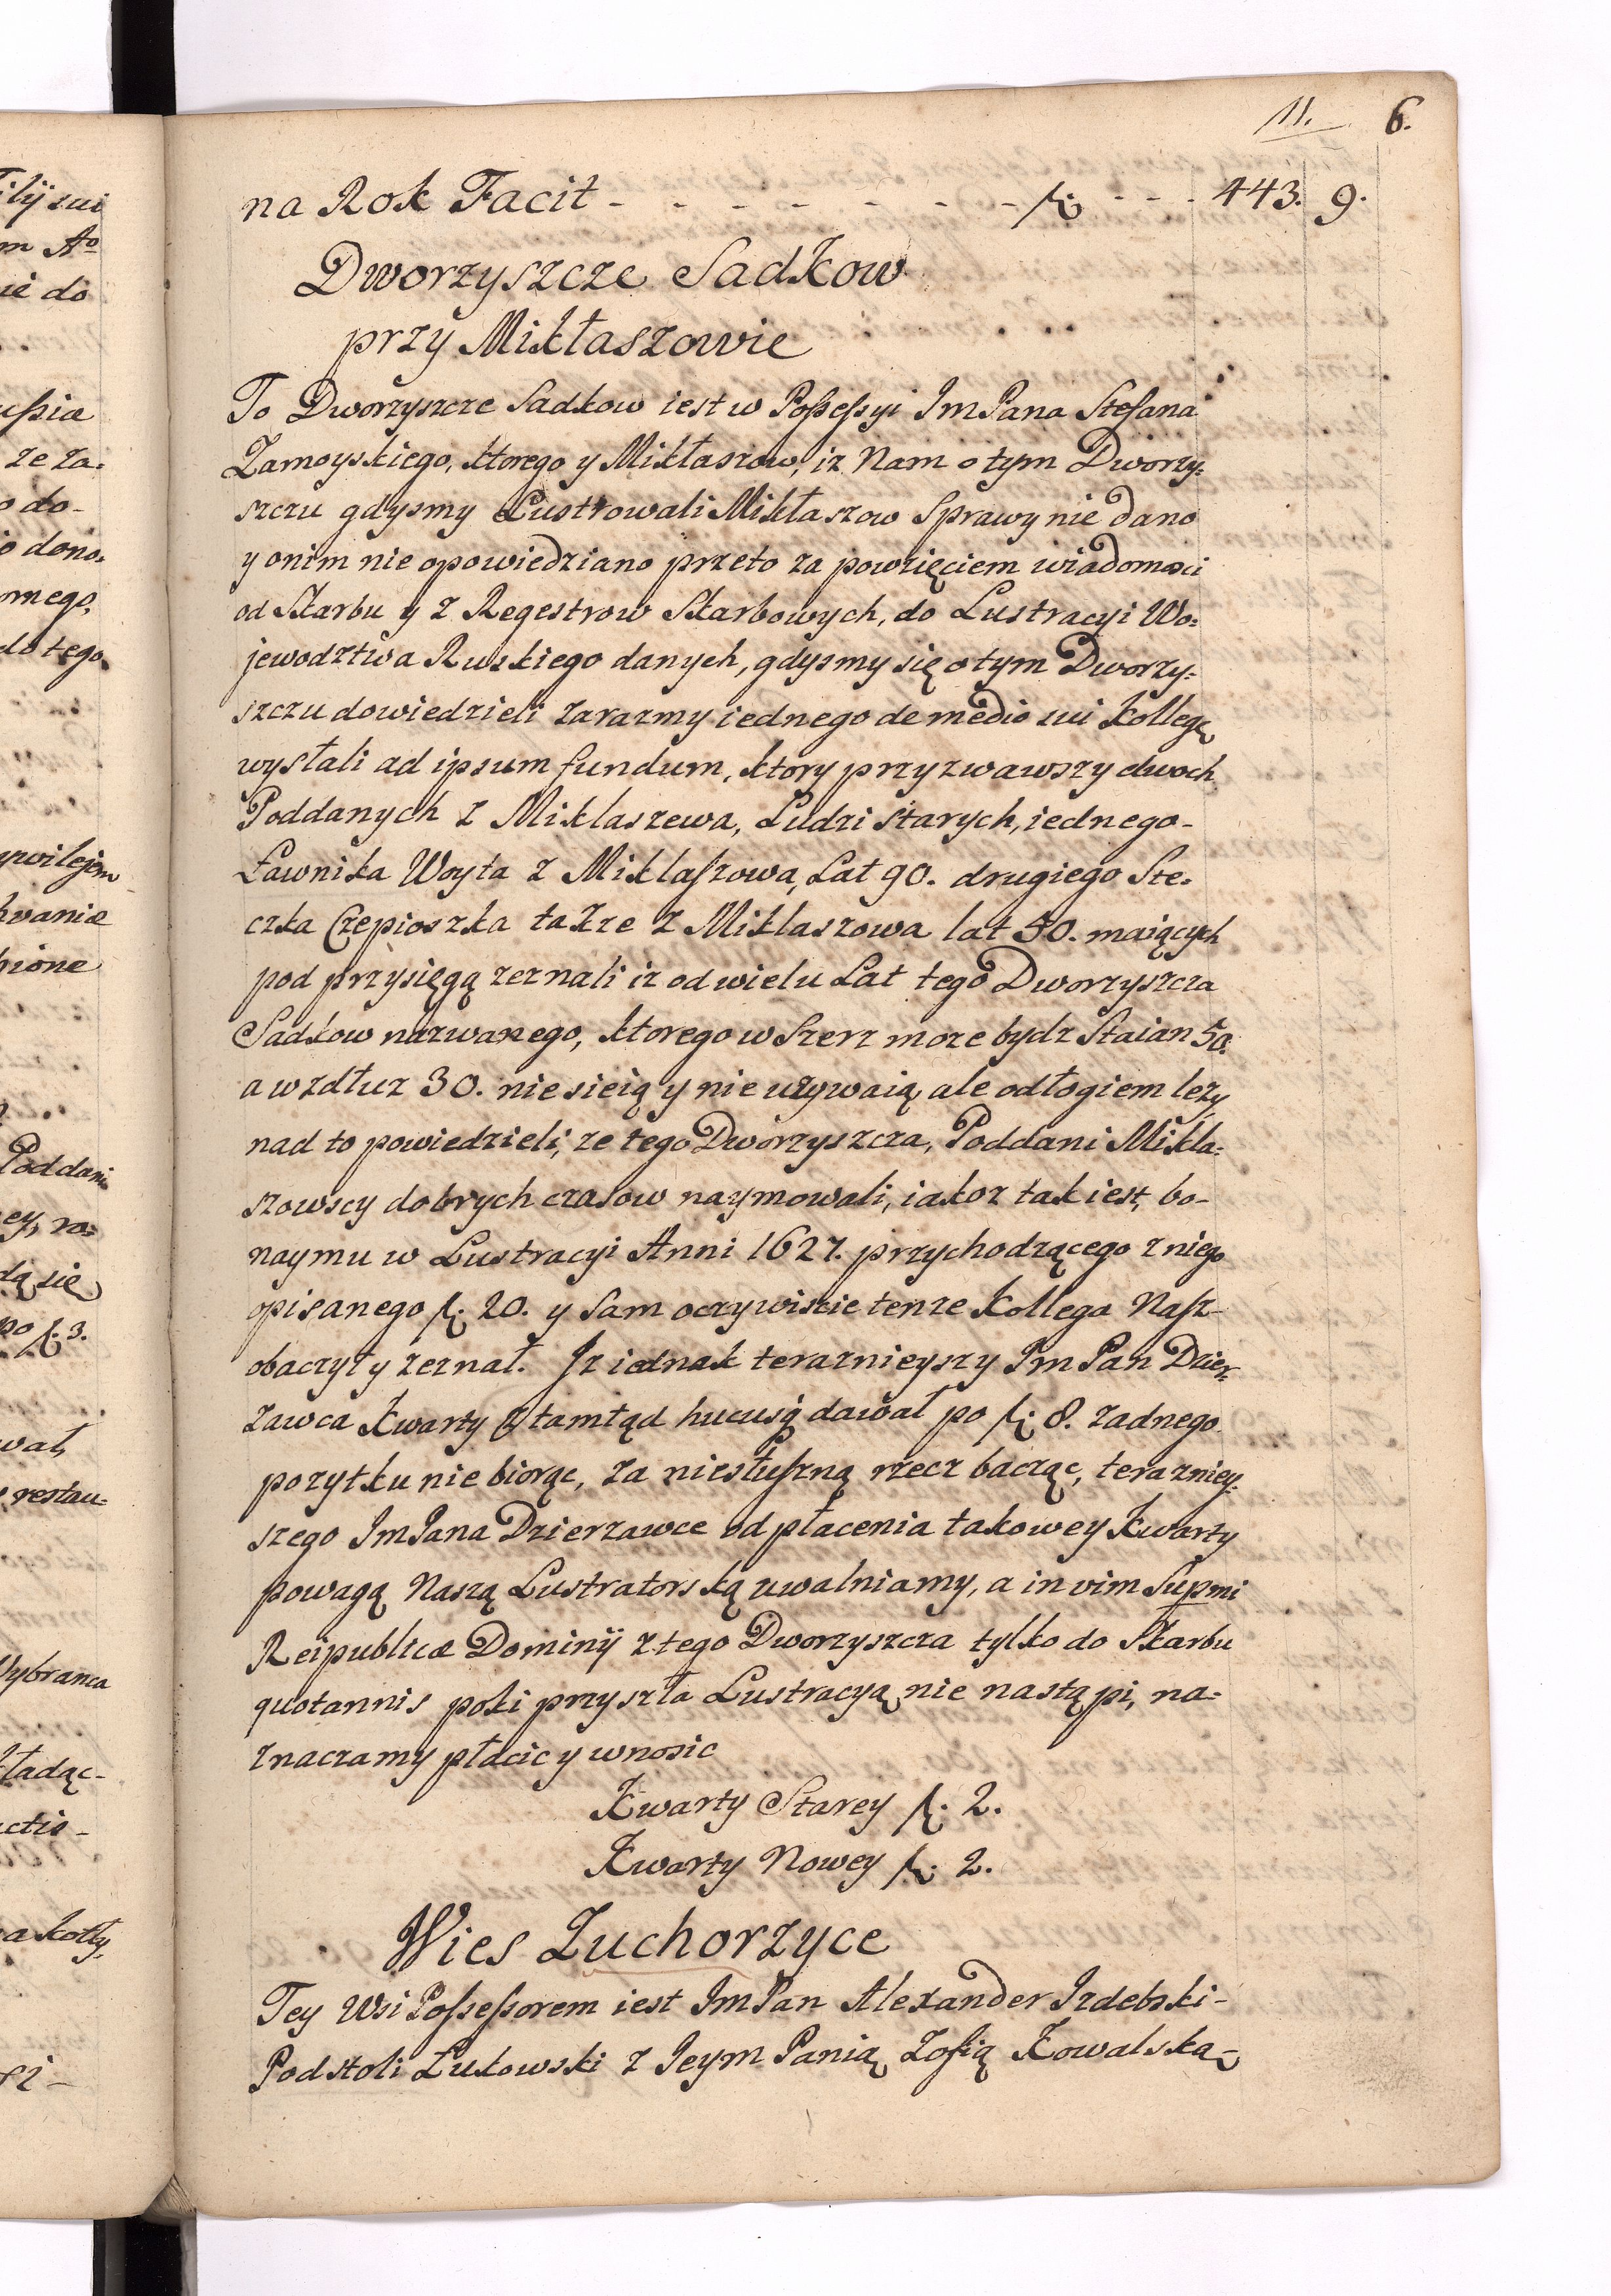 11. 6.
na Rok Facit - - - - - - - - - fl: - - - 443. 9.
Dworzyszcze Sadkow
przy Mikłaszowie
To Dworzyszcze Sadkow iest w Poſseſsyi ImPana Stefana
Zamoyskiego, ktorego y Mikłaszow, iz Nam o tym Dworzy-
szczu gdysmy Lustrowali Mikłaszow Sprawy nie dano
y onim nie opowiedziano przeto za powzięciem wiadomosci
od Skarbu y z Regestrow Skarbowych, do Lustracyi Wo-
jewodztwa Ruskiego danych, gdysmy się o tym Dworzy-
szczu dowiedzieli zarazmy iednego de medio sui Kollegę
wysłali ad ipsum fundum, ktory przyzwawszy dwoch
Poddanych z Miklaszewa, Ludzi starych, iednego-
Ławnika Woyta z Miklaſzowa, Lat 90. drugiego Ste-
czka Czepioszka takze z Miklaszowa lat 50. maiących
pod przysięgą zeznali iz od wielu Lat tego Dworzyszcza
Sadkow nazwanego, ktorego w Szerz moze bydz Staian 50.
a wzdłuz 30. niesieią y nie uzywaią, ale odłogiem lezy
nad to powiedzieli, ze tego Dworzyszcza, Poddani Mikla-
szowscy dobrych czasow naymowali, iakoz tak iest, bo-
naymu w Lustracyi Anni 1627. przychodzącego z niego
opisanego fl: 20. y Sam oczywiscie tenze Kollega Naſz-
obaczył y zeznał. Jz iednak teraznieyszy ImPan Dzier-
zawca Kwarty ztamtąd hucusq dawał po fl: 8. zadnego
pozytku nie biorąc, za niesłuſzną rzecz bacząc, terazniey-
szego ImPana Dzierzawce od płacenia takowey Kwarty
powagą Naszą Lustratorską uwalniamy, a in vim Supmi
Reipublicæ Dominij z tego Dworzyszcza tylko do Skarbu
quotannis poki przyszła Lustracyą nie nastąpi, na-
znaczamy płacic y wnosic
Kwarty Starey fl: 2.
Kwarty Nowey fl: 2.
Wies Zuchorzyce
Tey Wsi Poſseſsorem iest ImPan Alexander Izdebski-
Podstoli Łukowski z Jeym Panią Zofią Kowalską-